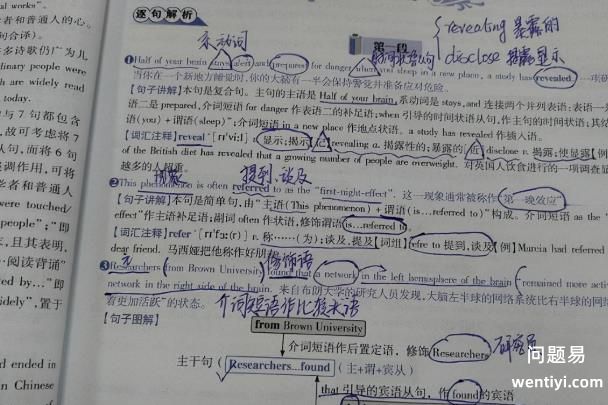 逐句解析
第一段
系动词
revealing 暴露的
disclose 揭露显示
时间状语从句
❶Half of your brain stays alert and prepared for danger when you sleep in a new place, a study has revealed.
当你在一个新地方睡觉时,你的大脑有一半会保持警觉并准备应对危险。
【句子讲解】本句是复合句。主句的主语是 Half of your brain,系动词是 stays,and 连接两个并列表语:表语一
语二是 prepared,介词短语 for danger 作表语二的补足语;when 引导的时间状语从句,作主句的时间状语;其结
语(you)+谓语(sleep)";介词短语 in a new place 作地点状语。a study has revealed 作插入语。
【词汇注释】reveal [rɪ'viːl] v. 显示;揭示 revealing a. 揭露性的;暴露的 近 disclose v. 揭露;使显露【例
of the British diet has revealed that a growing number of people are overweight. 对英国人饮食进行的一项调查显
越多的人超重。
现象
提到,谈及
❷This phenomenon is often referred to as the "first-night-effect". 这一现象通常被称作"第一晚效应"
【句子讲解】本句是简单句,由"主语(This phenomenon)+谓语(is…referred to)"构成。介词短语 as the "
effect"作主语补足语;副词 often 作状语,修饰谓语 is…referred to。
【词汇注释】refer [rɪ'fɜː(r)] v. 称……(为);谈及,提及【词组】refre to 提到,谈及【例】Murcia had referred
dear friend. 马西娅把他称作好朋
修饰语
❸Researchers from Brown University found that a network in the left hemisphere of the brain "remained more acti
network in the right side of the brain. 来自布朗大学的研究人员发现,大脑左半球的网络系统比右半球的网
着更加活跃"的状态。
介词短语作比较状语
【句子图解】
from Brown University
介词短语作后置定语,修饰 Researchers
研究员
主干句 Researchers…found (主+谓+宾从)
that 引导的宾语从句,作 found 的宾语
al works".
者和普通人的心。
句合译)。
许多诗歌仍广为儿
dinary people were
h are widely read
today.
与 7 句都包含
故可考虑将 7
从句,而将 6 句
强调作用,可将
学者和普通人
were touched/
people";"即
来,且其表明,
…阅读背诵"
ted by…"即
idely",置于
d ended in
n Chinese
of English
问题易
wentiyi.com